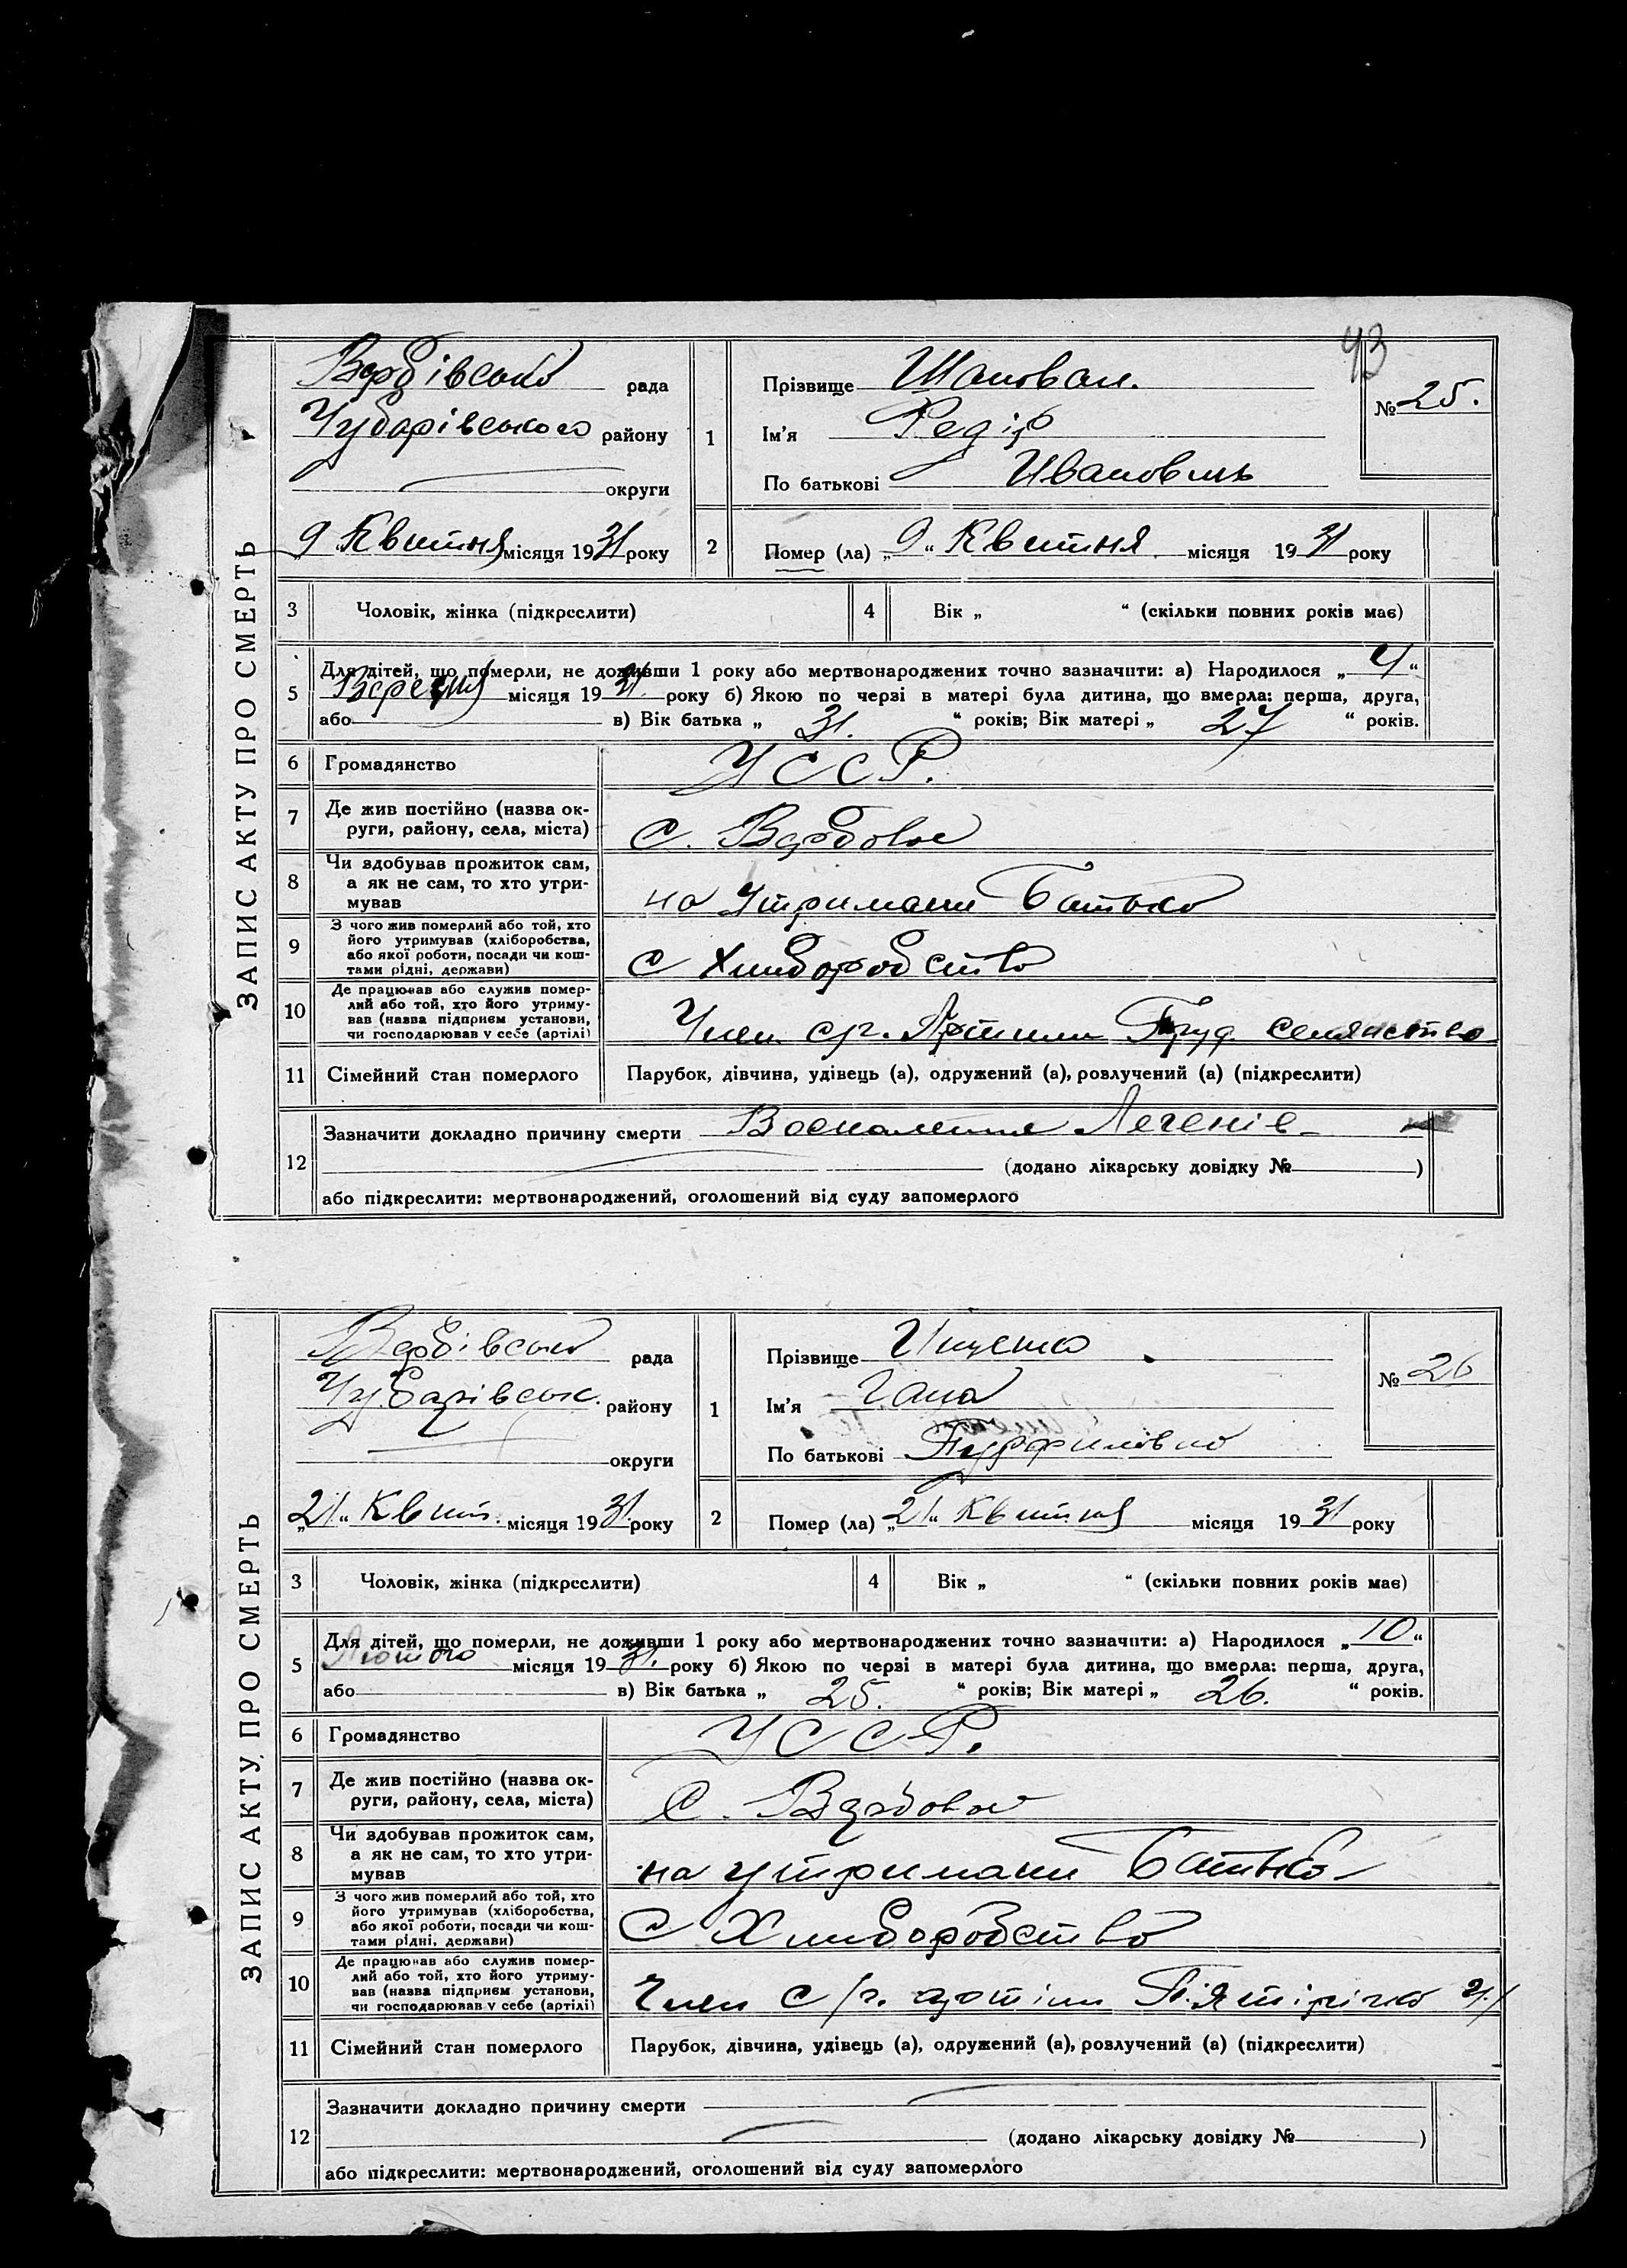 43
ЗАПИС АКТУ ПРО СМЕРТЬ
Вербівська рада
Чубарівського району
округи
1
Прізвище Шаповал.
Ім'я Федір
По батькові Ивановичь
№ 25.
9 Квитня місяця 1931 року
2
Помер (ла) „9“ Квитня місяця 1931 року
3 Чоловік, жінка (підкреслити)
4 Вік „ “ (скільки повних років має)
5 Для дітей, що померли, не доживши 1 року або мертвонароджених точно зазначити: а) Народилося „4“
місяця 1931. року б) Якою по черзі в матері була дитина, що вмерла: перша, друга,
або в) Вік батька „ 31. “ років; Вік матері „ 27 “ років.
6 Громадянство УССР.
7 Де жив постійно (назва ок-
руги, району, села, міста) С. Вербове
8 Чи здобував прожиток сам,
а як не сам, то хто утри-
мував на утримани батька
9 З чого жив померлий або той, хто
його утримував (хліборобства,
або якої роботи, посади чи кош-
тами рідні, держави) С Хлиборобства
10 Де працював або служив помер-
лий або той, хто його утриму-
вав (назва підприєм установи,
чи господарював у себе (артілі) Член с/г. Артили Труд
11 Сімейний стан померлого Парубок, дівчина, удівець (а), одружений (а), розлучений (а) (підкреслити)
12 Зазначити докладно причину смерти Воспаление Легенів
(додано лікарську довідку № )
або підкреслити: мертвонароджений, оголошений від суду запомерлого
ЗАПИС АКТУ ПРО СМЕРТЬ
Вербівська рада
Чубарівськ. району
округи
1
Прізвище Ищенко
Ім'я Гана
По батькові
№ 26
„21“ Квит. місяця 1931. року
2
Помер (ла) „21“ Квитня місяця 1931 року
3 Чоловік, жінка (підкреслити)
4 Вік „ “ (скільки повних років має)
5 Для дітей, що померли, не доживши 1 року або мертвонароджених точно зазначити: а) Народилося „10“
Лютого місяця 1931. року б) Якою по черзі в матері була дитина, що вмерла: перша, друга,
або в) Вік батька „ 25. “ років; Вік матері „ 26. “ років.
6 Громадянство УССР.
7 Де жив постійно (назва ок-
руги, району, села, міста) С. Вербове
8 Чи здобував прожиток сам,
а як не сам, то хто утри-
мував на утримани Батька
9 З чого жив померлий або той, хто
його утримував (хліборобства,
або якої роботи, посади чи кош-
тами рідні, держави) С Хлиборобства
10 Де працював або служив помер-
лий або той, хто його утриму-
вав (назва підприєм установи,
чи господарював у себе (артілі) Член с/г. артіли Пʼятірічка
11 Сімейний стан померлого Парубок, дівчина, удівець (а), одружений (а), розлучений (а) (підкреслити)
12 Зазначити докладно причину смерти
(додано лікарську довідку № )
або підкреслити: мертвонароджений, оголошений від суду запомерлого